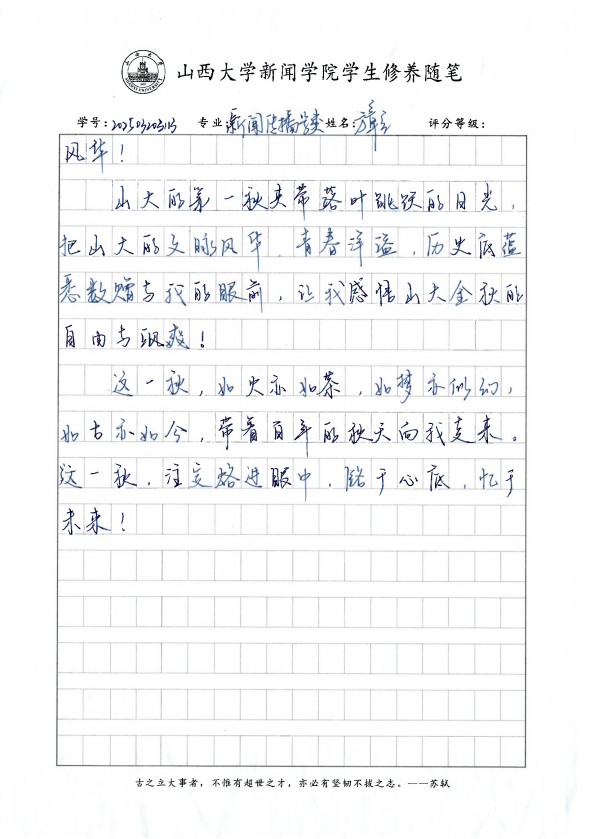 山西大学新闻学院学生修养随笔
学号: 专业:新闻传播学类 姓名: 评分等级:
风华！
山大的第一秋夹带落叶跳跃的日光，
把山大的文脉风华、青春洋溢，历史底蕴
悉数赠与我的眼前，让我感悟山大金秋的
自由与飒爽！
这一秋，如火亦如荼，如梦亦似幻，
如古亦如今，带着百年的秋天向我走来。
这一秋，注定烙进眼中，铭于心底，忆于
未来！
古之立大事者，不惟有超世之才，亦必有坚韧不拔之志。——苏轼